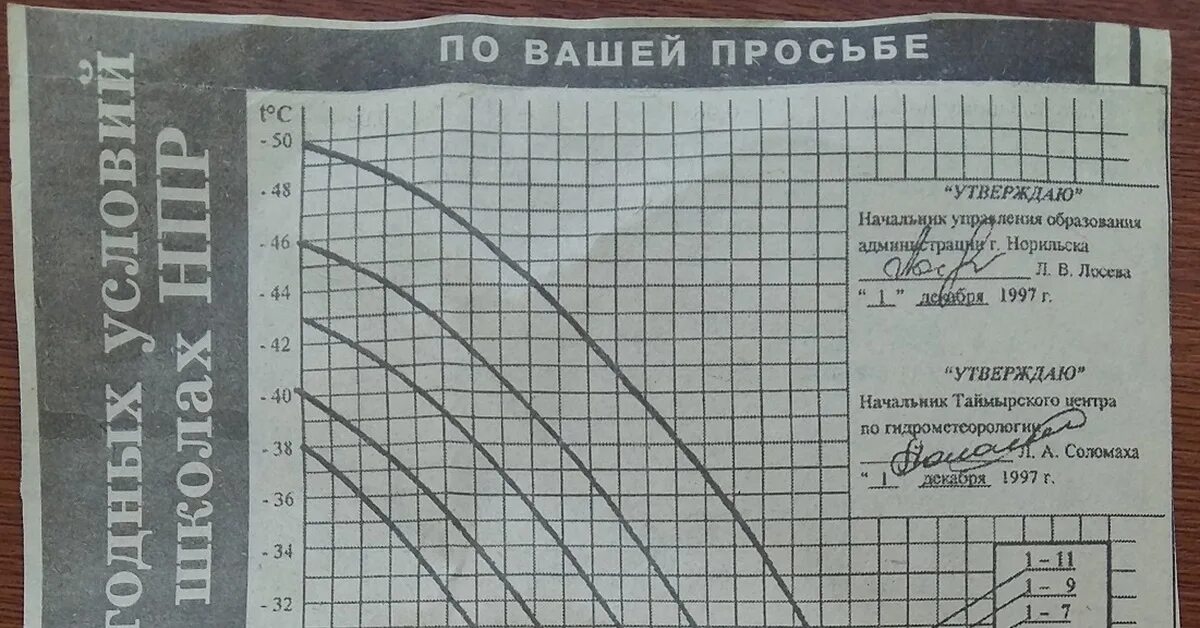 ПО ВАШЕЙ ПРОСЬБЕ
годных условий
школах НПР
t°C
- 50
- 48
- 46
- 44
- 42
- 40
- 38
- 36
- 34
- 32
"УТВЕРЖДАЮ"
Начальник управления образования
администрации г. Норильска
Л. В. Лосева
" 1 " декабря 1997 г.
"УТВЕРЖДАЮ"
Начальник Таймырского центра
по гидрометеорологии
Л. А. Соломаха
" 1 " декабря 1997 г.
1 - 11
1 - 9
1 - 7